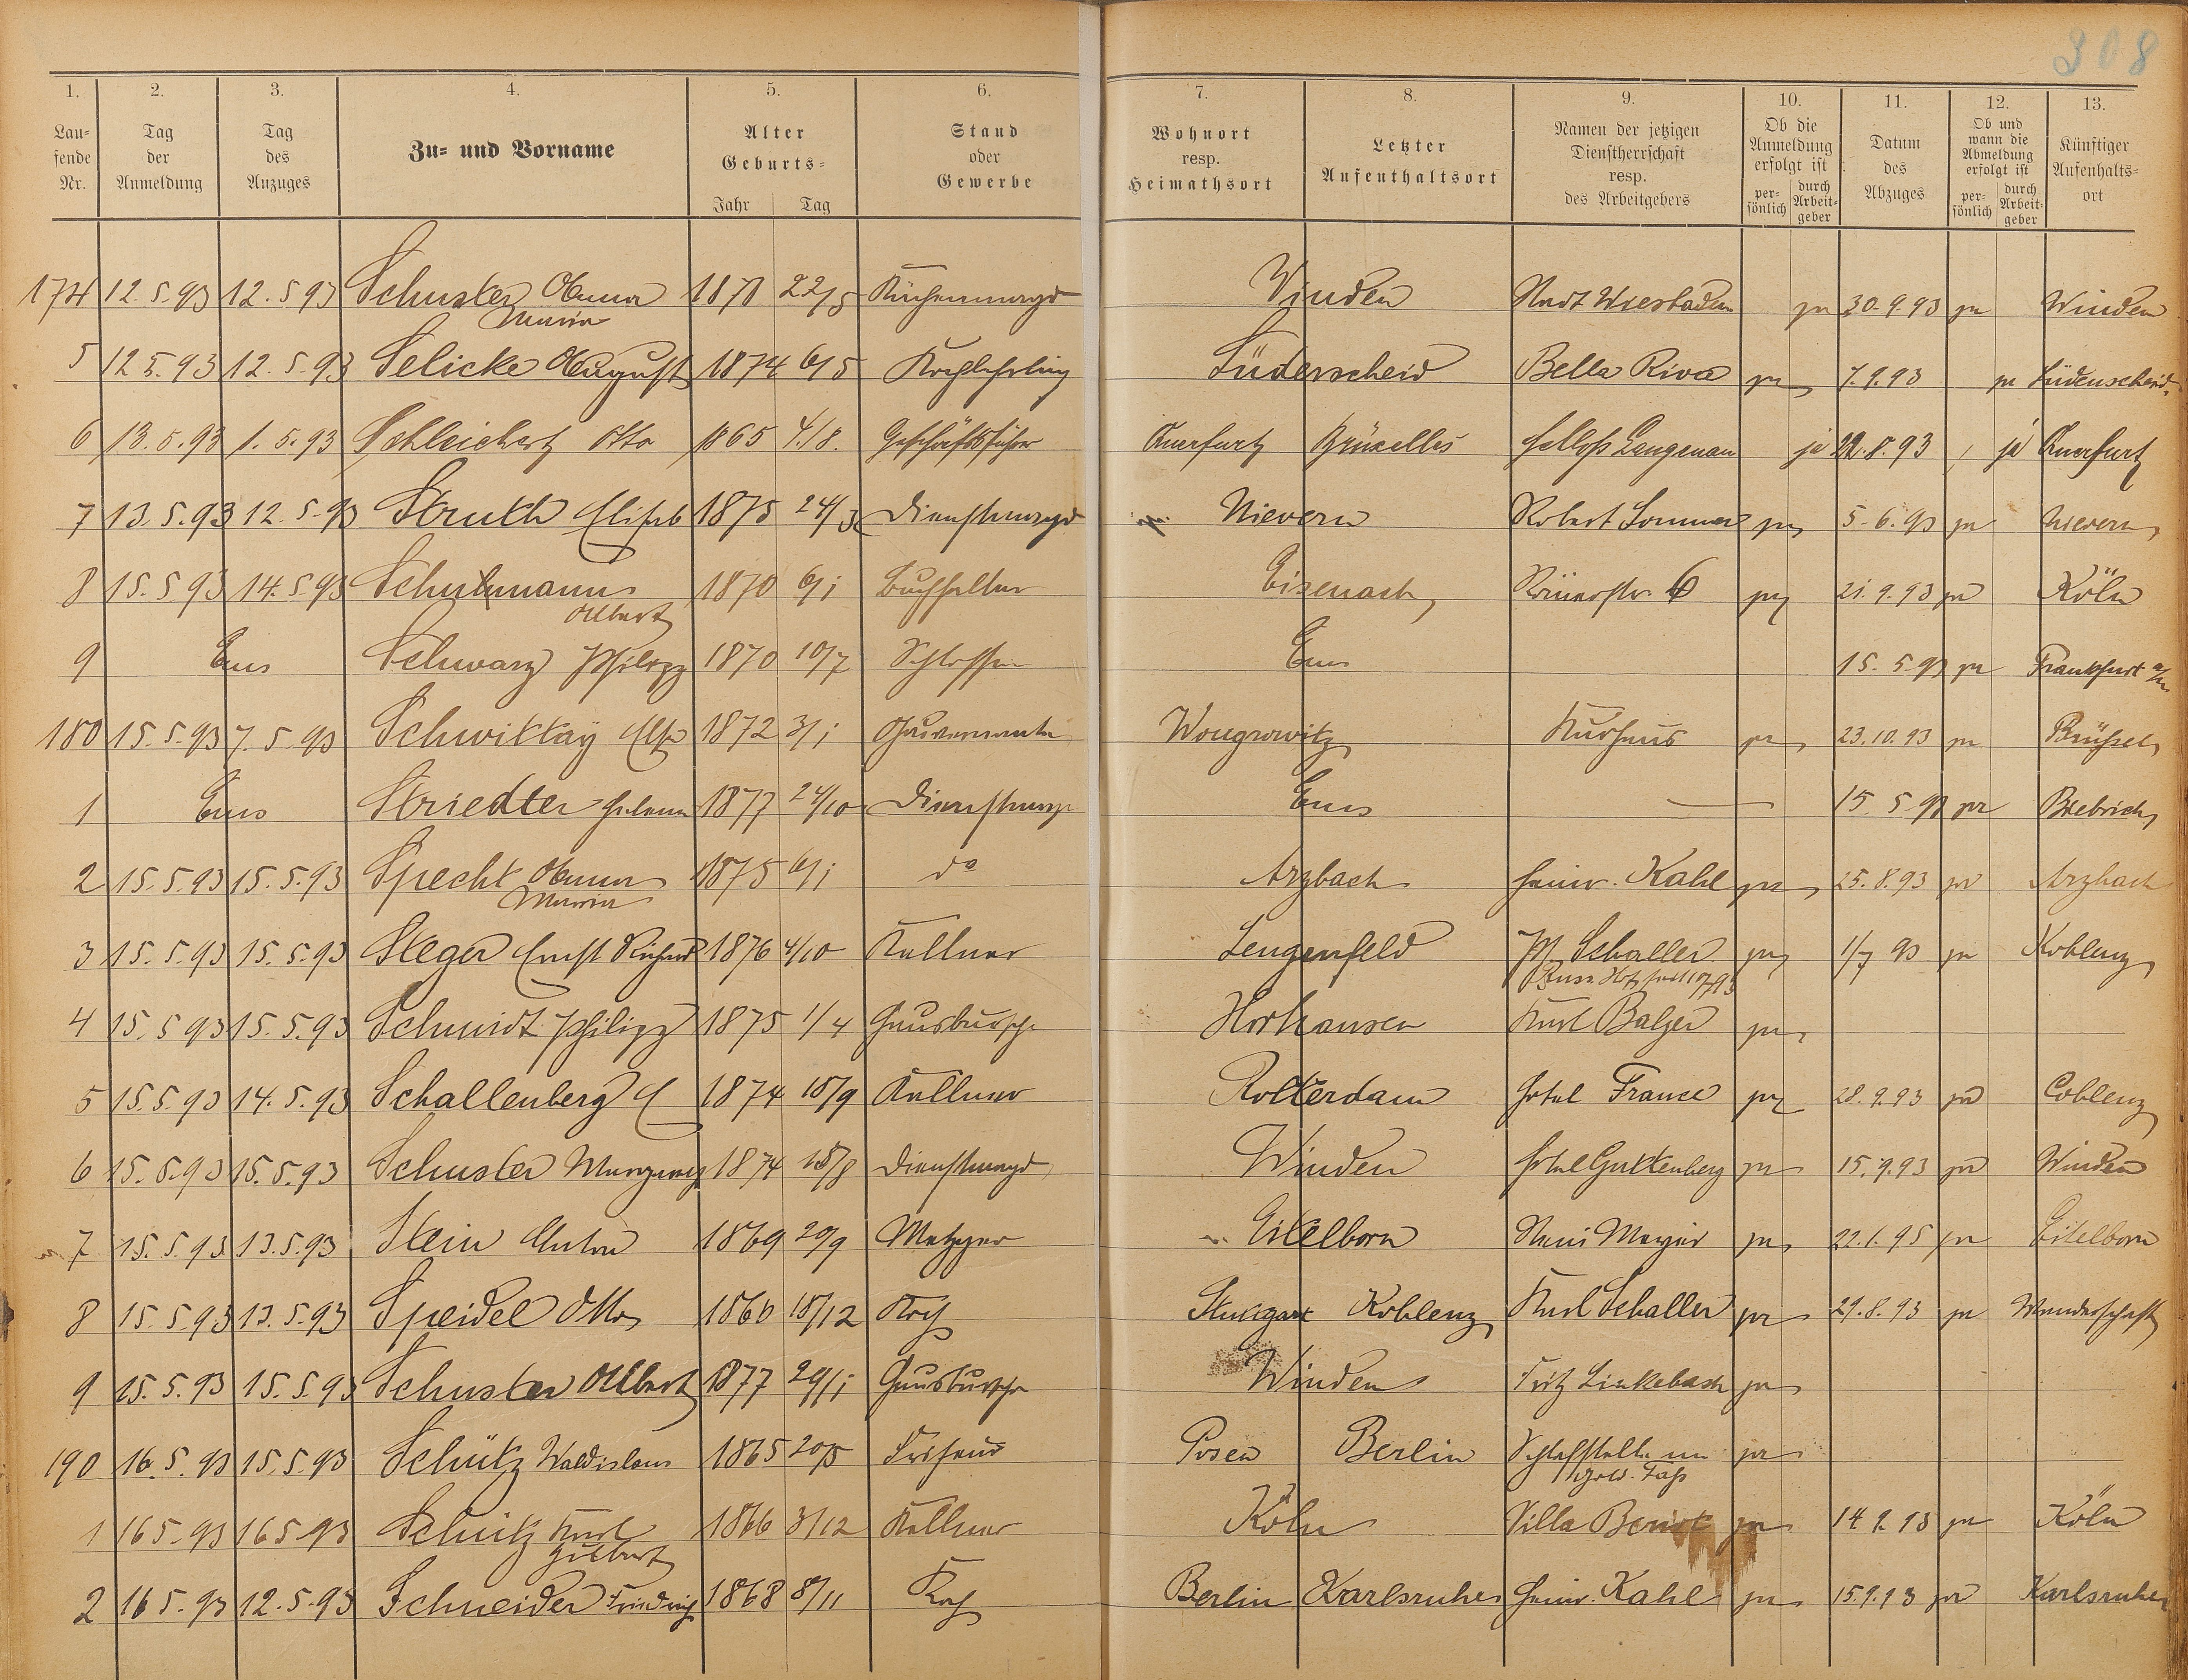 308
1. 2. 3. 4. 5. 6. 7. 8. 9. 10. 11. 12. 13.
Lau-
sende
Nr.
Tag
der
Anmeldung
Tag
des
Anzuges
Zu- und Vorname
Alter
Geburts-
Jahr Tag
Stand
oder
Gewerbe
Wohnort
resp.
Heimathsort
Letzter
Aufenthaltsort
Namen der jetzigen
Dienstherrschaft
resp.
des Arbeitgebers
Ob die
Anmeldung
erfolgt ist
per-
sönlich
durch
Arbeit-
geber
Datum
des
Abzuges
Ob und
wann die
Abmeldung
erfolgt ist
per-
sönlich
durch
Arbeit-
geber
Künftiger
Aufenhalts-
ort
174 12.5.93 12.5.93 Schuster Anna 22/5 Küchenmagd Winden Stadt Wiesbaden ja 30.9.93 ja Winden
Maria
5 12.5.93 12.5.93 Selicke August 1874 6/5 Kochlehrling Lüderscheid Bella Riva ja 7.9.93 ja Lüdenscheid
6 13.5.93 1.5.93 Schleichert Otto 1865 4/8. Geschäftsführer Querfurt Brüxelles Schloß Langenau ja 22.8.93 ja Querfurt
7 13.5.93 12.5.93 Struth Elisab 1875 24/3 Dienstmagd Nievern Robert Sommer ja 5.6.93 ja Nievern
8 15.5.93 14.5.93 Schuhmann 1870 6/1 Buchhalter Eisenach Römerstr. 6 ja 21.9.93 ja Köln
Albert
9 Ems Schwarz Philipp 1870 10/7 Schlosser Ems 15.5.93 ja Frankfurt a/M
180 15.5.93 7.5.93 Schwittay Else 1872 3/1 Gouvernante Wongrowitz Kurhaus ja 23.10.93 ja Brüssel
1 Ems Striedter Helena 1877 24/10 Dienstmagd Ems — 15.5.93 ja Biebrich
2 15.5.93 15.5.93 Specht Anna 1875 6/1 do Arzbach Heinr. Kahl ja 25.8.93 ja Arzbach
Maria
3 15.5.93 15.5.93 Steger Ernst Richard 1876 4/10 Kellner Lengenfeld Schaller ja 1/7 93 ja Koblenz
Russ. Hof
4 15.5.93 15.5.93 Schmidt Philipp 1875 1/4 Hausbursche Horhausen Karl Balzer ja
5 15.5.93 14.5.93 Schallenberg C 1874 18/9 Kellner Rotterdam Hotel France ja 28.9.93 ja Coblenz
6 15.5.93 15.5.93 Schuster 1874 18/8 Dienstmagd Winden Hotel Guttenberg ja 15.9.93 ja Winden
7 15.5.93 13.5.93 Stein Anton 1869 20/9 Metzger Eitelborn Meyer ja 22.1.95 ja Eitelborn
8 15.5.93 13.5.93 Speidel Otto 1860 18/12 Koch Stuttgart Koblenz Karl Schaller ja 29.8.93 ja Wanderschaft
9 15.5.93 15.5.93 Schuster Albert 1877 29/1 Hausbursche Winden Fritz Linkebach ja
190 16.5.93 15.5.93 Schütz Waldislaus 1865 20/5 Friseur Posen Berlin Schlafstelle im ja
gold. Faß
1 16.5.93 16.5.93 Schütz Karl 1866 3/12 Kellner Köln Villa ja 14.9.93 ja Köln
Hubert
2 16.5.93 12.5.93 Schneider Friedrich 1868 8/11 Koch Berlin Karlsruhe Heinr. Kahl ja 15.9.93 ja Karlsruhe